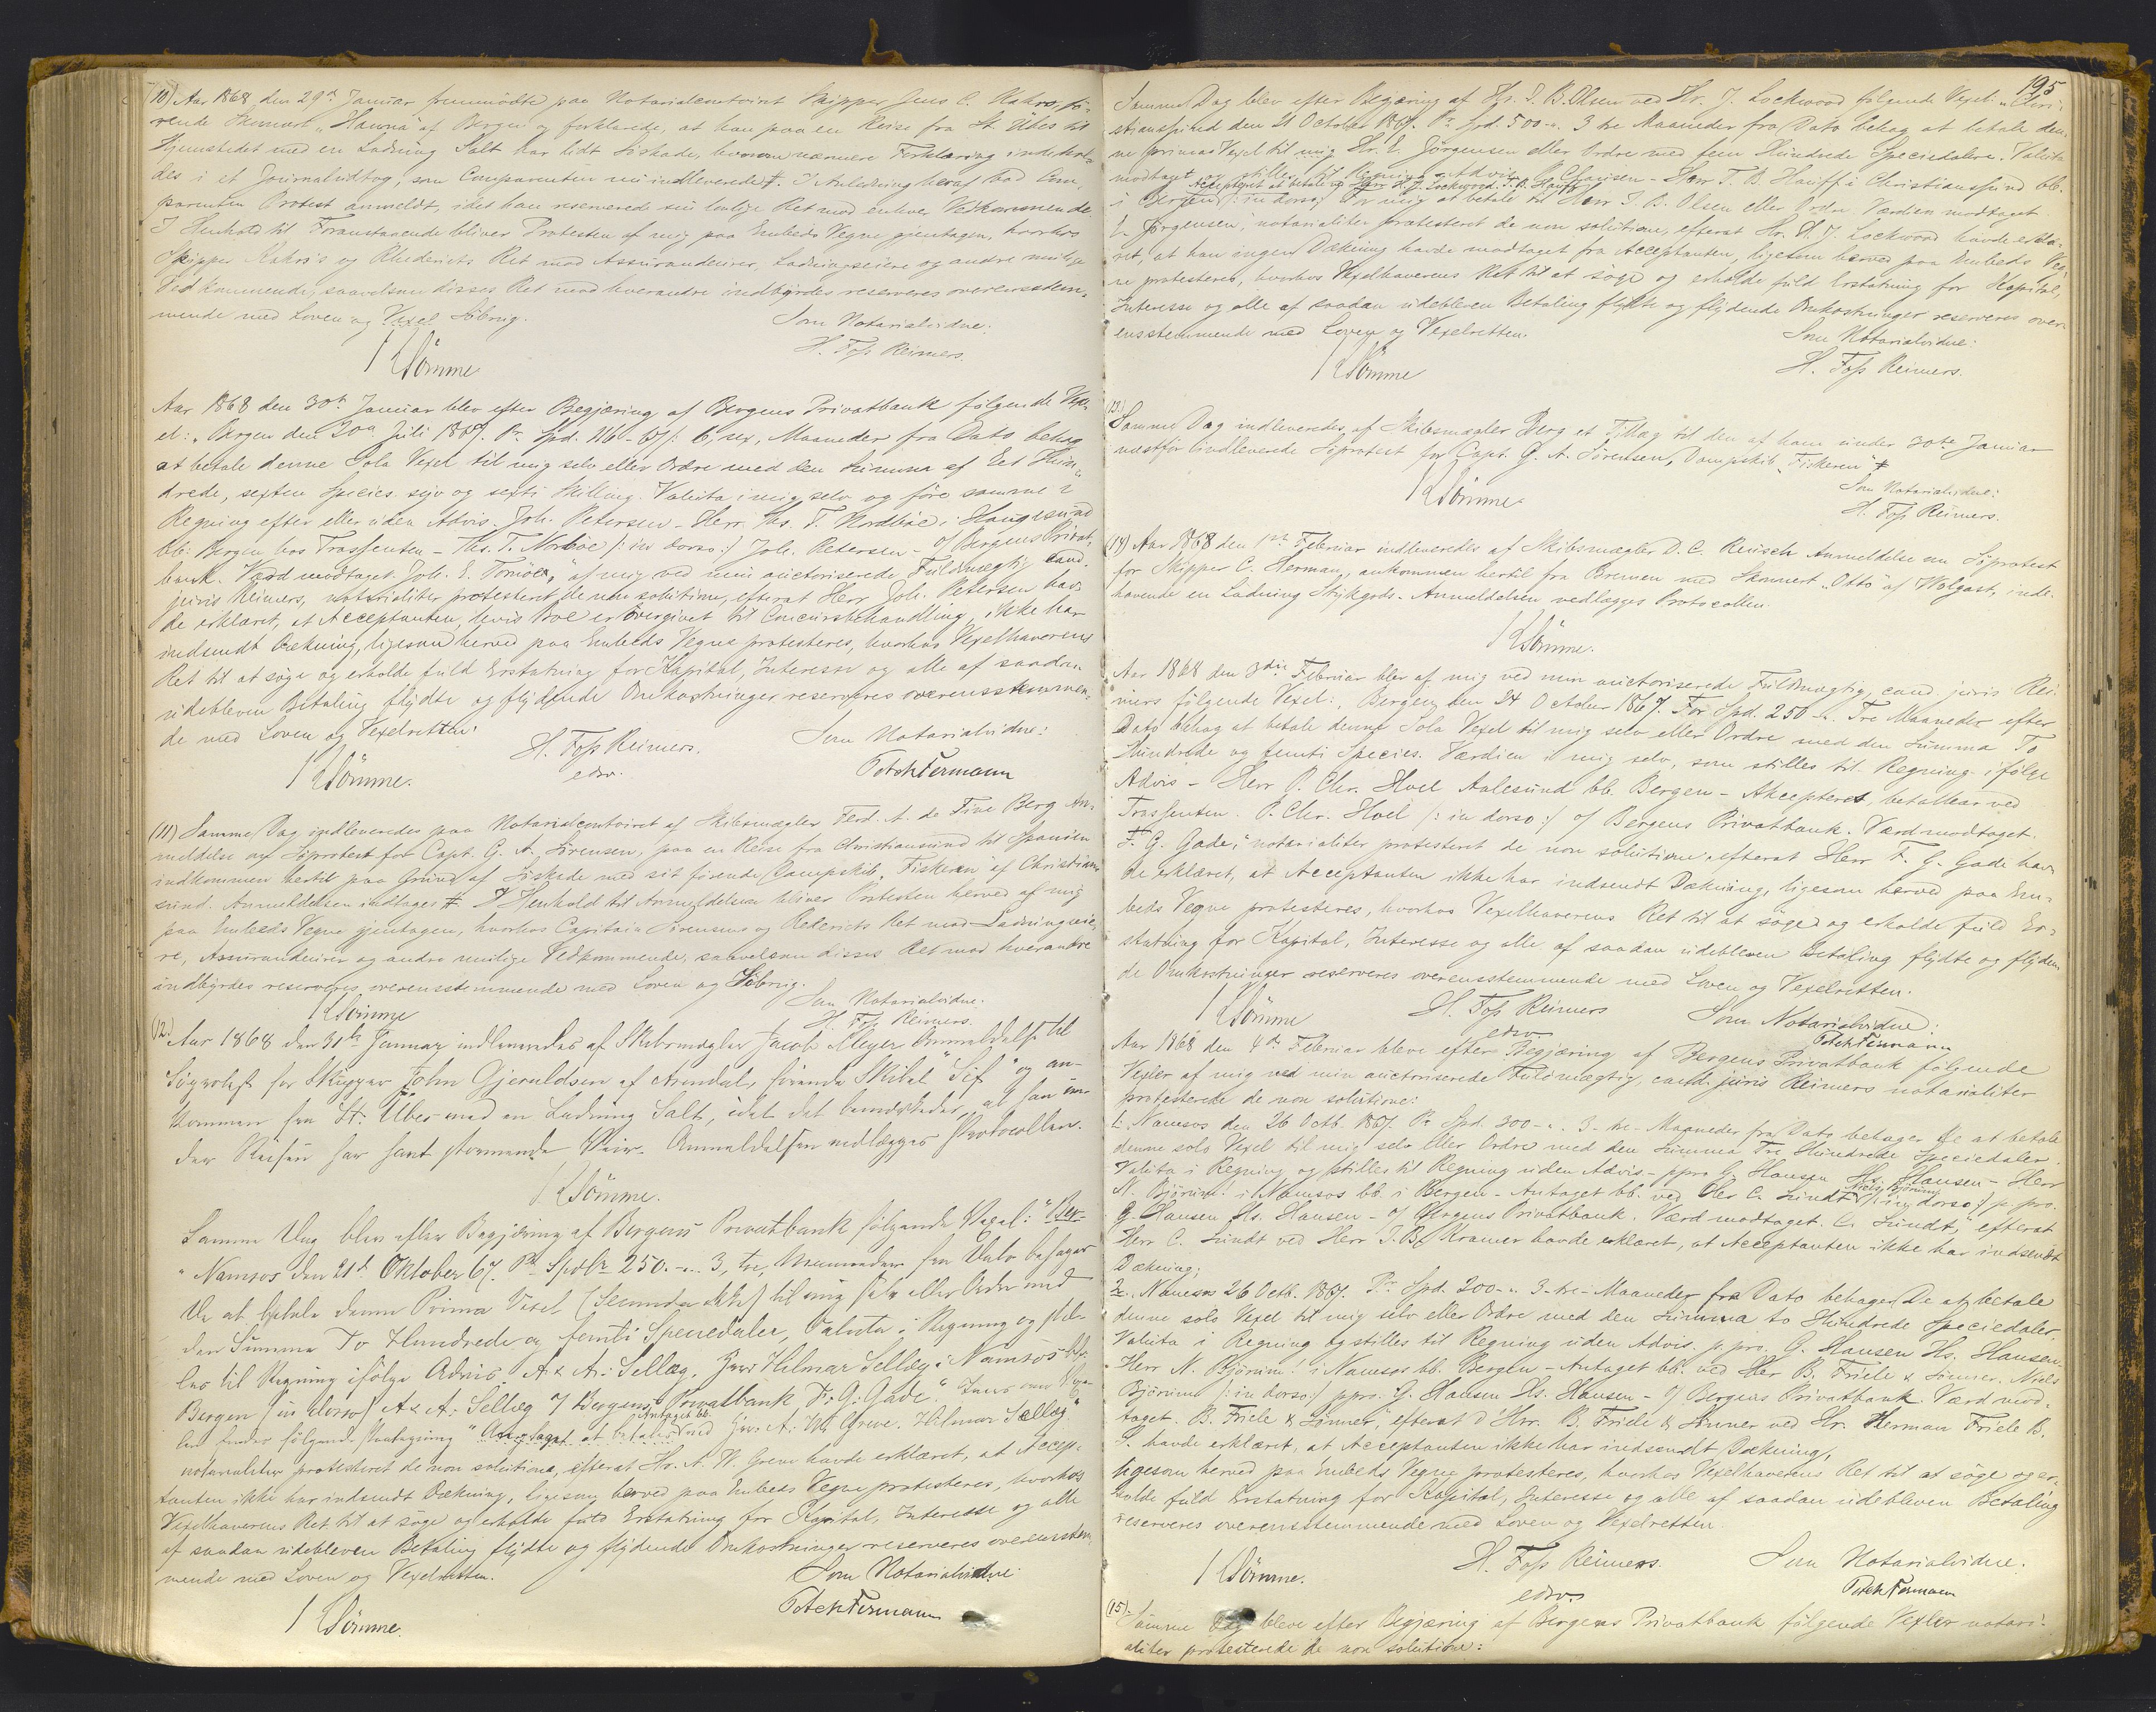 10) Aar 1868 den 29de Januar fremmödte paa Notarialcontoiret Skipper Jens C. Kahrs, fö-
rende Skonnert "Hanna" af Bergen og forklarede, at han paa en Reise fra St. Übes til
Hjemstedet med en Ladning Salt har lidt Söskade, hvorom nærmere Forklaring indehol-
des i et Journaludtog, som Comparenten nu indleverede #. I Anledning heraf bad Com-
parenten Protest anmeldt, idet han reserverede sin lovlige Ret mod enhver Vedkommende
I Henhold til Foranstaaende bliver Protesten af mig paa Embeds Vegne gjentagen, hvorhos
Skipper Kahrs's og Rhederiets Ret mod Assurandeurer, Ladningseiere og andre mulige
Vedkommende, saavelsom disses Ret mod hverandre indbyrdes reserveres overensstem-
mende med Loven og Vexel Söbrug.
Som Notarialvidne:
H. Foss Reimers.
Sömme
Aar 1868 den 30te Januar blev efter Begjæring af Bergens Privatbank fölgende Vex-
el: "Bergen den 30te Juli 1867. Pr. Spd. 116-67/: 6, sex, Maaneder fra Dato behag
at betale denne Sola Vexel til mig selv eller Ordre med den Summa af Eet Hun-
drede, sexten Species syv og sexti Skilling. Valuta i mig selv og före samme i
Regning efter eller uden Advis. Joh. Petersen - Herr Ths. T. Nordböe i Haugesund
bb: Bergen hos Trassenten - Ths. T. Norböe /: in dorso:/ Joh. Petersen - o/ Bergens Privat-
bank. Værd modtaget. Joh. E. Tornöe," af mig ved min auctoriserede Fuldmægtig cand.
juris Reimers, notarialiter protesteret de non solutione, efterat Herr Joh. Petersen hav-
de erklæret, at Acceptanten, hvis Boe er overgivet til Concursbehandling, ikke har
indsendt Dækning, ligesom herved paa Embeds Vegne protesteres, hvorhos Vexelhaverens
Ret til at söge og erholde fuld Erstatning for Kapital, Interesse og alle af saadan
udebleven Betaling flydte og flydende Omkostninger reserveres overensstemmen-
de med Loven og Vexelretten.
H. Foss Reimers.
edsv.
Som Notarialvidne:
Sömme.
(11) Samme Dag indleveredes paa Notarialcontoiret af Skibsmægler Ferd. A. de Fine Berg An-
meldelse om Söprotest for Capt. G. A. Sörensen, paa en Reise fra Christiansund til Spanien
indkommen hertil paa Grund af Söskade med sit förende Dampskib "Fiskeren" af Christian-
sund. Anmeldelsen indtages #. I Henhold til Anmeldelsen bliver Protesten herved af mig
paa Embeds Vegne gjentagen, hvorhos Capitain Sörensens og Rederiets Ret mod Ladningseie-
re, Assurandeurer og andre mulige Vedkommende, saavelsom disses Ret mod hverandre
indbyrdes reserveres overensstemmende med Loven og Söbrug.
Som Notarialvidne.
H. Foss Reimers.
Sömme
(12.) Aar 1868 den 31te Januar indleveredes af Skibsmægler Jacob Meyer Anmeldelse til
Söprotest for Skipper John Gjeruldsen af Arendal, förende Skibet "Sif" og an-
kommen fra St. Übes med en Ladning Salt, idet det bemærkedes, at han un-
der Reisen har havt stormende Veir. Anmeldelsen vedlægges Protocollen.
Sömme.
Samme Dag blev efter Begjæring af Bergens Privatbank fölgende Vexel: "Ber-
"Namsos den 21de Oktober 67. Pr. Spdlr. 250.-.. 3, tre, Maaneder fra Dato behager
De at betale denne Prima Vexel (Secunda ikke) til mig selv eller Ordre med
den Summa To Hundrede og femti Speciedaler, Valuta i Regning og stil-
les til Regning ifölge Advis. A & A. Sellæg. Herr Hilmar Sellæg i Namsos bb.
Bergen /in dorso/ A & A. Sellæg o/ Bergens Privatbank F. G. Gade."
Antaget bb.
fölgende Paategning "Antaget at betales ved Herr A. W. Greve. Hilmar Sellæg"
notarialiter protesteret de non solutione, efterat Hr. A. W. Greve havde erklæret, at Accep-
tanten ikke har indsendt Dækning, ligesom herved paa Embeds Vegne protesteres, hvorhos
Vexelhaverens Ret til at söge og erholde fuld Erstatning for Kapital, Interesse og alle
af saadan udebleven Betaling flydte og flydende Omkostninger reserveres overensstem-
mende med Loven og Vexelretten.
Som Notarialvidne:
Sömme.
195
Samme Dag blev efter Begjæring af Hr. J. B. Olsen ved Hr. J. Lockwood fölgende Vexel: "Chri-
stianssund den 21 October 1867. Pr. Spd. 500-.. 3 tre Maaneder fra Dato behag at betale den-
ne prima Vexel til mig Hr. E. Jörgensen eller Ordre med fem Hundrede Speciedaler. Valuta
modtaget og stilles til Regning Advis. Clausen - Herr J. B. Hauff i Christianssund bb.
Accepteret at betale og Herr H. J. Lockwood. J. B. Hauff
i Bergen /:in dorso:/ For mig at betale til Herr J. B. Olsen eller Ordre. Værdien modtaget.
E. Jörgensen", notarialiter protesteret de non solutione, efterat Hr. H. J. Lockwood havde erklæ-
ret, at han ingen Dækning havde modtaget fra Acceptanten, ligesom herved paa Embeds Veg-
ne protesteres, hvorhos Vexelhaverens Ret til at söge og erholde fuld Erstatning for Kapital,
Interesse og alle af saadan udebleven Betaling flydte og flydende Omkostninger reserveres over-
ensstemmende med Loven og Vexelretten.
Som Notarialvidne:
H. Foss Reimers.
Sömme
(13.)
Samme Dag indleveredes af Skibsmægler Berg et Tillæg til den af ham under 30te Januar
næstför indleverede Söprotest for Capt. G. A. Sörensen, Dampskib "Fiskeren" #
Som Notarialvidne:
H. Foss Reimers.
Sömme
(14) Aar 1868 den 1ste Februar indleveredes af Skibsmægler D. C. Reusch Anmeldelse om Söprotest
for Skipper C. Herman, ankommen hertil fra Bremen med Skonnert "Otto" af Wolgast, inde-
havende en Ladning Stykgods. Anmeldelsen vedlægges Protocollen.
Sömme.
Aar 1868 den 3die Februar blev af mig ved min auctoriserede Fuldmægtig, cand. juris Rei-
mers fölgende Vexel: "Bergen den 24 October 1867. For Spd. 250-.. Tre Maaneder efter
Dato behag at betale denne Sola Vexel til mig selv eller Ordre med den Summa To
Hundrede og femti Species. Værdien i mig selv, som stilles til Regning ifölge
Advis - Herr P. Chr. Hoel Aalesund bb. Bergen - Akcepteret, betalbar ved
Trassenten. P. Chr. Hoel /: in dorso:/ o/ Bergens Privatbank. Værd modtaget.
F. G. Gade," notarialiter protesteret de non solutione, efterat Herr F. G. Gade hav-
de erklæret, at Acceptanten ikke har indsendt Dækning, ligesom herved paa Em-
beds Vegne protesteres, hvorhos Vexelhaverens Ret til at söge og erholde fuld Er-
statning for Kapital, Interesse og alle af saadan udebleven Betaling flydte og flyden-
de Omkostninger reserveres overensstemmende med Loven og Vexelretten.
Sömme
H. Foss Reimers
edsv.
Som Notarialvidne:
Aar 1868 den 4de Februar bleve efter Begjæring af Bergens Privatbank fölgende
Vexler af mig ved min auctoriserede Fuldmægtig, cand. juris Reimers notarialiter
protesterede de non solutione:
1. Namsos den 26 Octb. 1867. Pr. Spd. 300-.. 3-tre-Maaneder fra Dato behager De at betale
denne solo Vexel til mig selv eller Ordre med den Summa Tre Hundrede Speciedaler.
Valuta i Regning og stilles til Regning uden Advis - ppro G. Hansen Hs. Hansen - Herr
N. Björum! i Namsos bb. i Bergen - Antaget bb. ved Herr C. Sundt Niels Björum /:in dorso:/ p. pro.
G. Hansen Hs. Hansen - o/ Bergens Privatbank. Værd modtaget. C. Sundt," efterat
Herr C. Sundt ved Herr J. B. Kramer havde erklæret, at Acceptanten ikke har indsendt
Dækning;
2. Namsos 26 Octb. 1867. Pr. Spd. 200-.. 3-tre-Maaneder fra Dato behager De at betale
denne solo Vexel til mig selv eller Ordre med den Summa to Hundrede Speciedaler.
Valuta i Regning og stilles til Regning uden Advis. p. pro. G. Hansen Hs. Hansen-
Herr N. Björum! i Namsos bb. Bergen - Antaget bb. ved Herr B. Friele & Sönner. Niels
Björum /:in dorso:/ ppro. G. Hansen Hs. Hansen - o/ Bergens Privatbank. Værd mod-
taget. B. Friele & Sönner," efterat d'Hrr. B. Friele & Sönner ved Hr. Herman Friele B.
S. havde erklæret, at Acceptanten ikke har indsendt Dækning,
ligesom herved paa Embeds Vegne protesteres, hvorhos Vexelhaverens Ret til at söge og er-
holde fuld Erstatning for Kapital, Interesse og alle af saadan udebleven Betaling
reserveres overensstemmende med Loven og Vexelretten.
Sömme.
H. Foss Reimers.
edsv.
Som Notarialvidne.
(15).
Samme Dag bleve efter Begjæring af Bergens Privatbank fölgende Vexler notari-
aliter protesterede de non solutione: